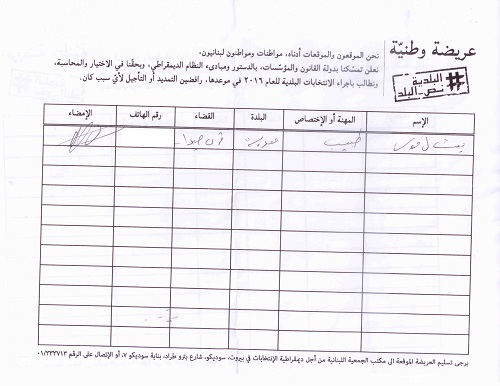 عريضة وطنيّة
#البلدية
نص_البلد
نحن الموقعون والموقعات أدناه، مواطنات ومواطنون لبنانيون،
نعلن تمسّكنا بدولة القانون والمؤسّسات، بالدستور ومبادىء النظام الديمقراطي، وبحقّنا في الاختيار والمحاسبة،
ونطالب باجراء الانتخابات البلدية للعام ٢٠١٦ في موعدها، رافضين التمديد أو التأجيل لأيّ سبب كان.
الإسم المهنة أو الإختصاص البلدة القضاء رقم الهاتف الإمضاء
ميشال موسى طبيب
يرجى تسليم العريضة الموقعة الى مكتب الجمعية اللبنانية من أجل ديمقراطية الإنتخابات في بيروت، سوديكو، شارع بترو طراد، بناية سوديكو ٧، أو الإتصال على الرقم ٠١/٣٣٣٧١٣